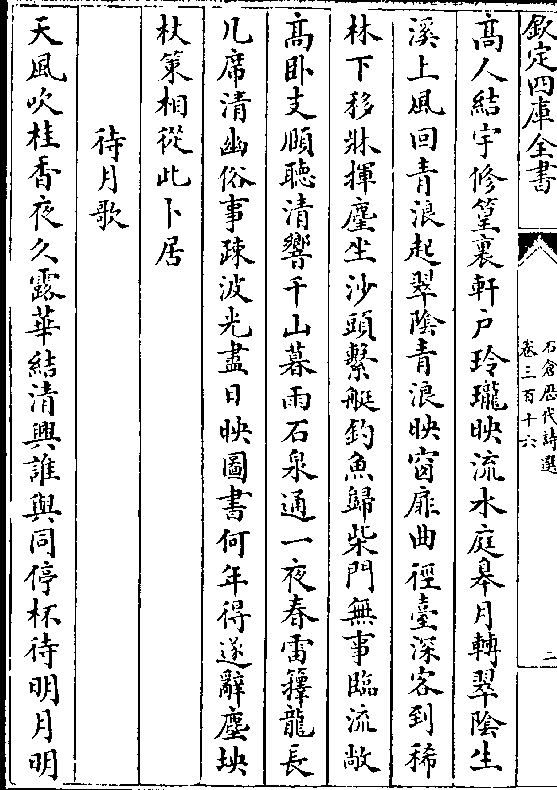 欽定四庫全書
石倉歷代詩選
卷三百十六
二
高人結宇修篁裏軒户玲瓏映流水庭皋月轉翠陰生
溪上風回青浪起翠陰青浪映窗扉曲徑臺深客到稀
林下移牀揮麈坐沙頭繫艇釣魚歸柴門無事臨流敞
高卧支頤聽清響千山暮雨石泉通一夜春雷籜龍長
几席清幽俗事疎波光盡日映圖書何年得遂辭塵坱
杖策相從此卜居
待月歌
天風吹桂香夜久露華結清興誰與同停杯待明月明